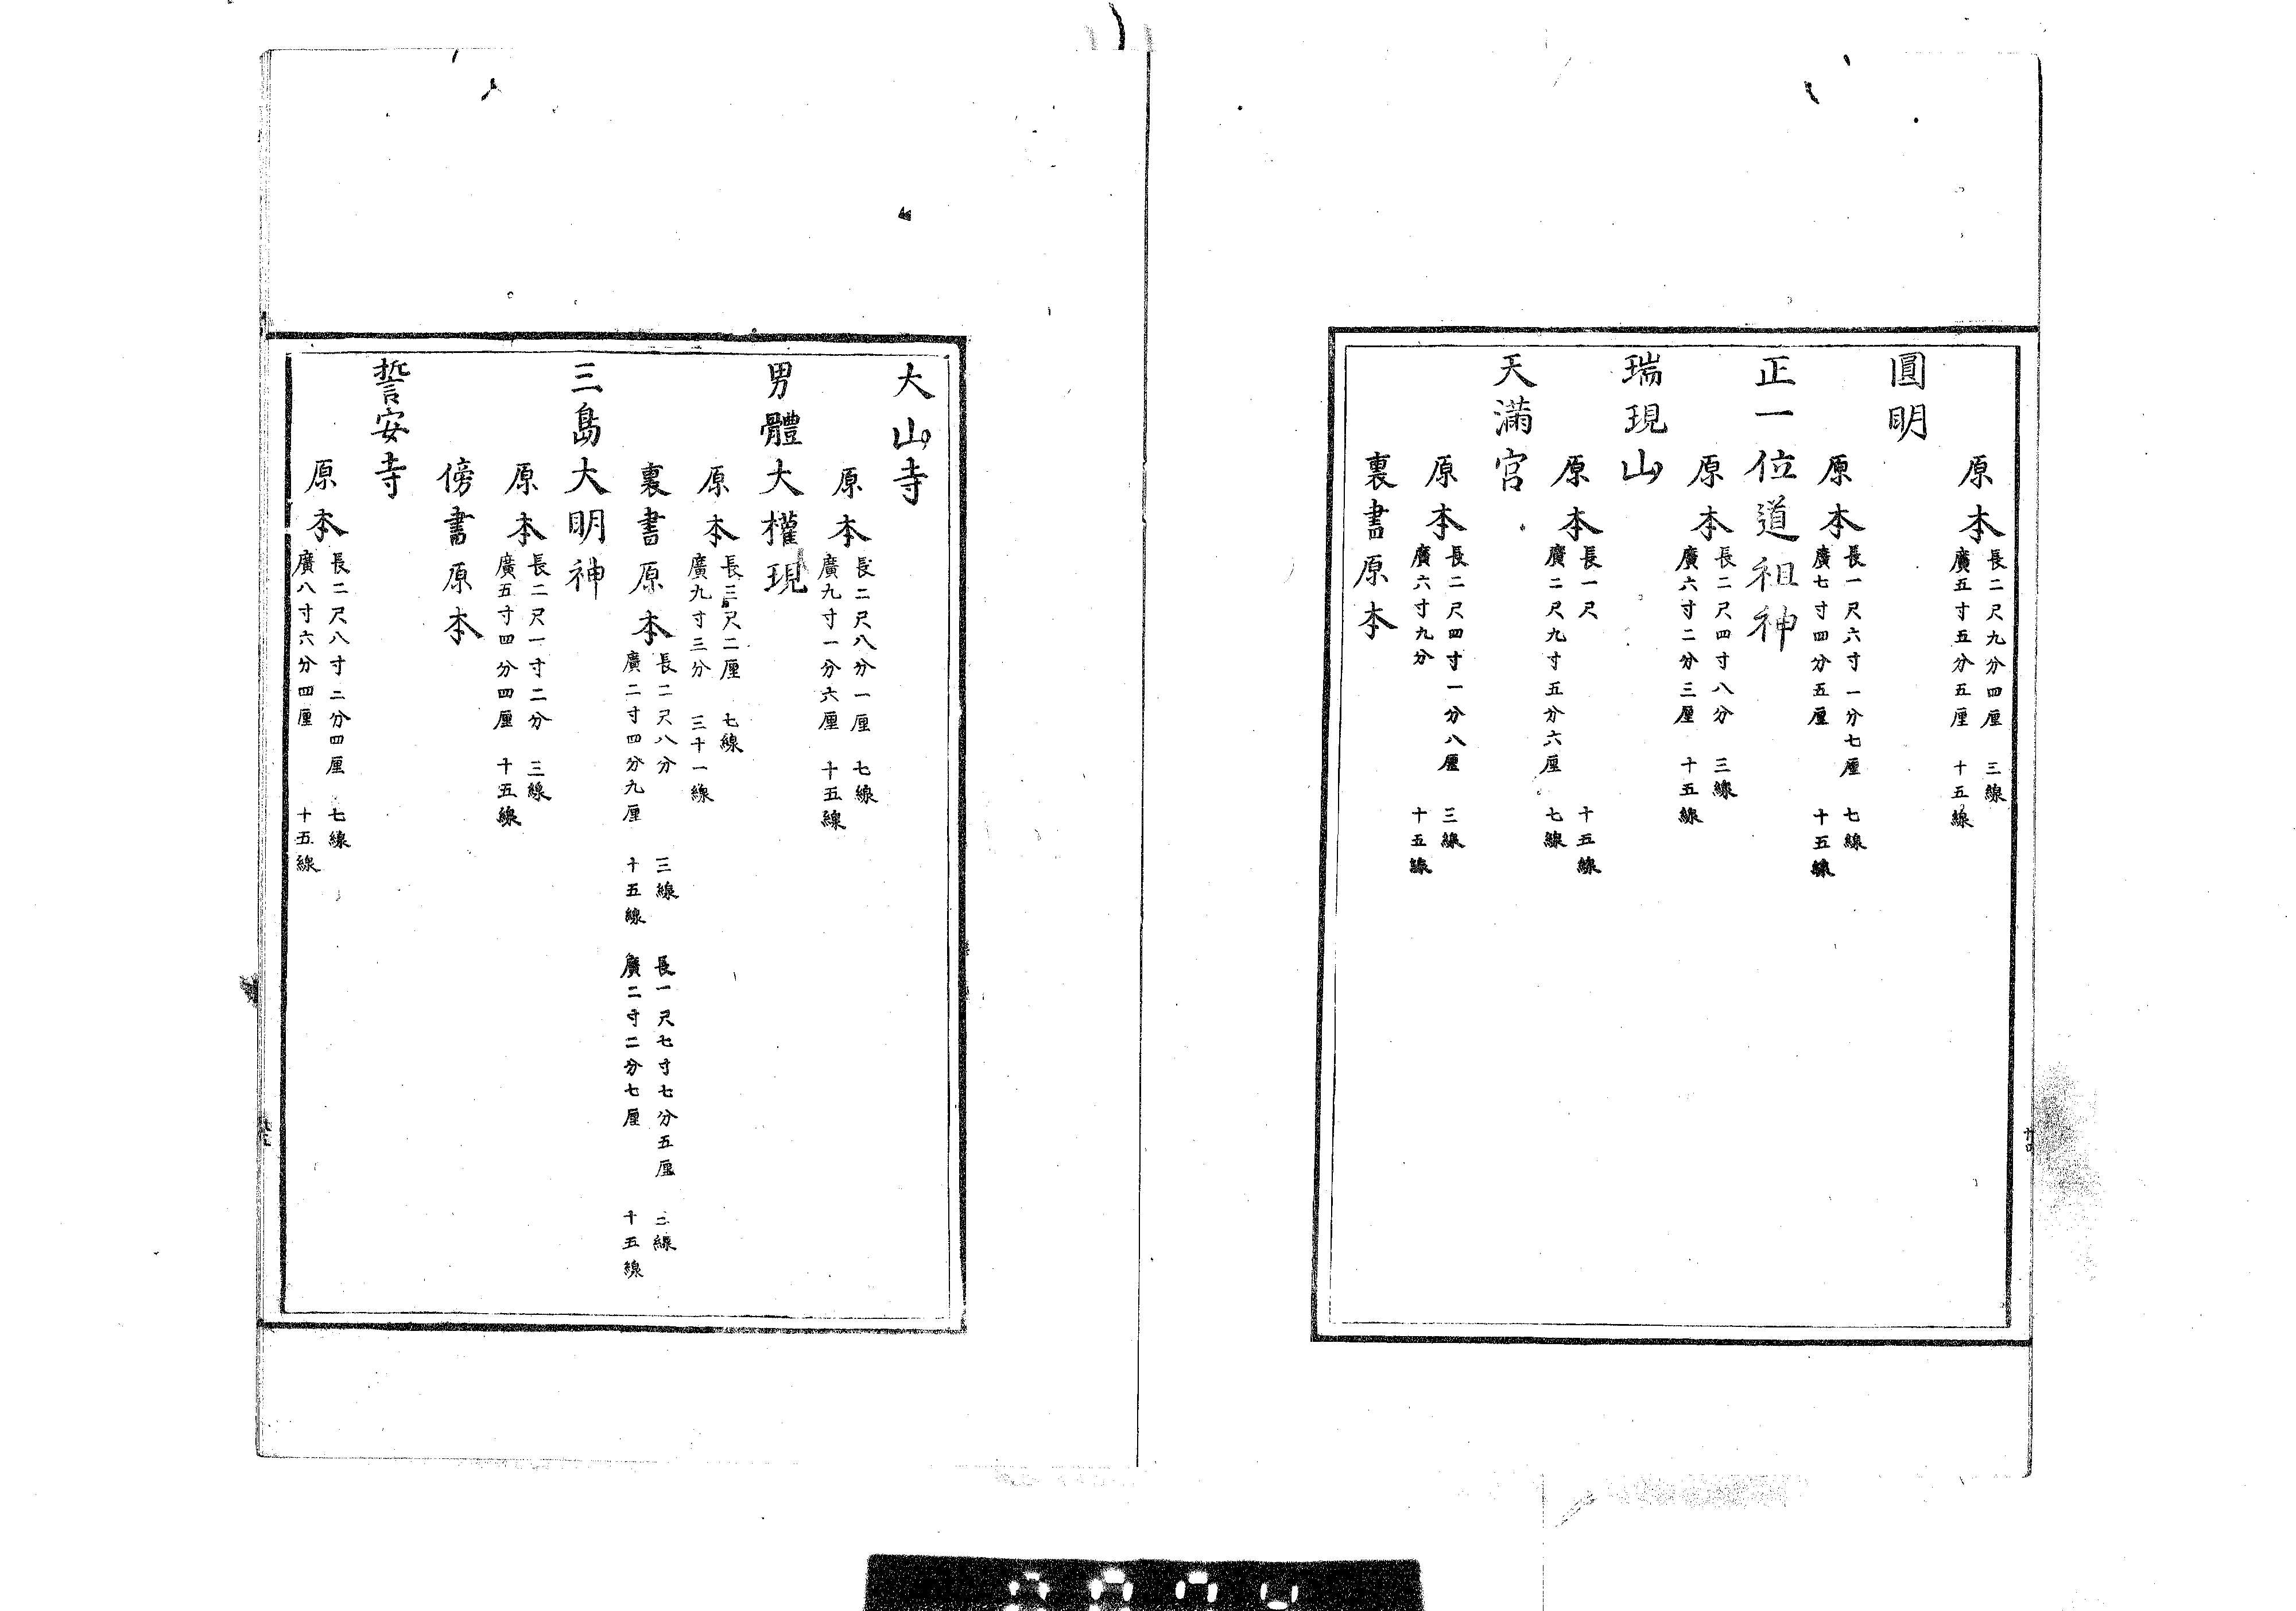 原本
長二尺九分四厘 三線
廣五寸五分五厘 十五線
圓明
原本
長一尺六寸一分七厘 七線
廣七寸四分五厘 十五線
正一位道祖神
原本
長二尺四寸八分 三線
廣六寸二分三厘 十五線
瑞現山
原本
長一尺 十五線
廣二尺九寸五分六厘 七線
天滿宮
原本
長二尺四寸一分八厘 三線
廣六寸九分 十五線
裏書原本
大山寺
原本
長二尺八分一厘 七線
廣九寸一分六厘 十五線
男體大權現
原本
長三尺二厘 七線
廣九寸三分 三十一線
裏書原本
長二尺八分 三線 長一尺七寸七分五厘 三線
廣二寸四分九厘 十五線 廣二寸二分七厘 十五線
三島大明神
原本
長二尺一寸二分 三線
廣五寸四分四厘 十五線
傍書原本
誓安寺
原本
長二尺八寸二分四厘 七線
廣八寸六分四厘 十五線